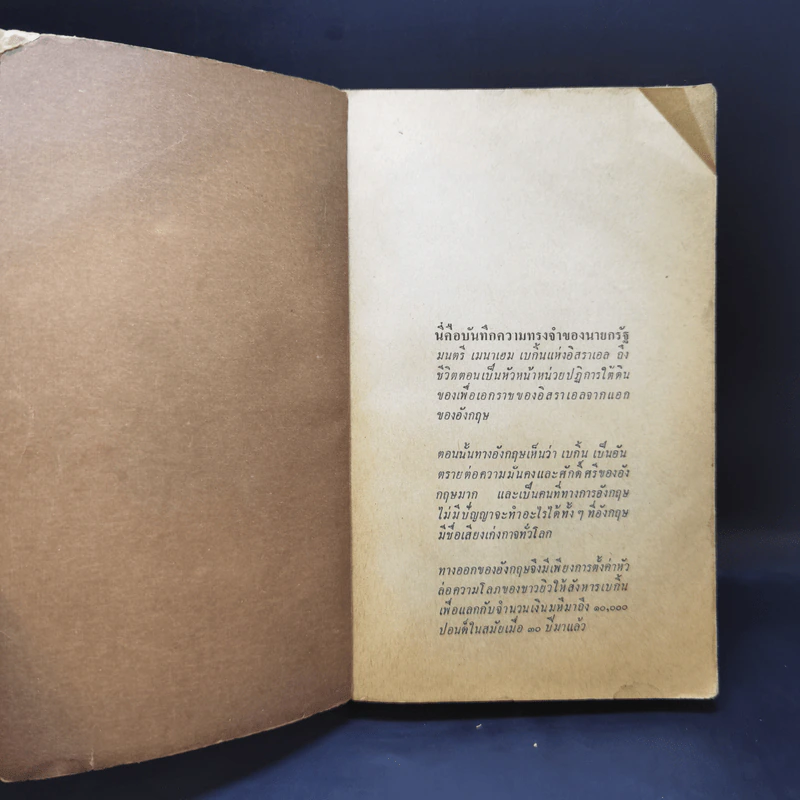 นี่คือบันทึกความทรงจำของนายกรัฐ
มนตรี เมนาเฮม เบกิ้นแห่งอิสราเอล ถึง
ชีวิตตอนเป็นหัวหน้าหน่วยปฏิการใต้ดิน
ของเพื่อเอกราชของอิสราเอลจากแอก
ของอังกฤษ
ตอนนั้นทางอังกฤษเห็นว่า เบกิ้น เป็นอัน
ตรายต่อความมั่นคงและศักดิ์ศรีของอัง
กฤษมาก และเป็นคนที่ทางการอังกฤษ
ไม่มีปัญญาจะทำอะไรได้ทั้ง ๆ ที่อังกฤษ
มีชื่อเสียงเก่งกาจทั่วโลก
ทางออกของอังกฤษจึงมีเพียงการตั้งค่าหัว
ล่อความโลภของชาวยิวให้สังหารเบกิ้น
เพื่อแลกกับจำนวนเงินมหึมาถึง ๑๐,๐๐๐
ปอนด์ในสมัยเมื่อ ๓๐ ปีมาแล้ว